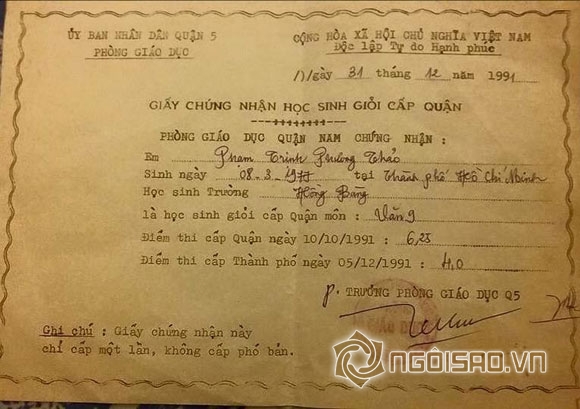 ỦY BAN NHÂN DÂN QUẬN 5
PHÒNG GIÁO DỤC
CỘNG HÒA XÃ HỘI CHỦ NGHĨA VIỆT NAM
Độc lập Tự do Hạnh phúc
Ngày 31 tháng 12 năm 1991
GIẤY CHỨNG NHẬN HỌC SINH GIỎI CẤP QUẬN
PHÒNG GIÁO DỤC QUẬN NĂM CHỨNG NHẬN :
Em Phạm Trinh Phương Thảo
Sinh ngày 08-3-1977 tại Thành phố Hồ Chí Minh
Học sinh Trường Hồng Bàng
là học sinh giỏi cấp Quận môn : Văn 9
Điểm thi cấp Quận ngày 10/10/1991 : 6,25
Điểm thi cấp Thành phố ngày 05/12/1991 : 4,0
P. TRƯỞNG PHÒNG GIÁO DỤC Q5
GIÁO DỤC
Ghi chú : Giấy chứng nhận này
chỉ cấp một lần, không cấp phó bản.
NGÔISAO.VN